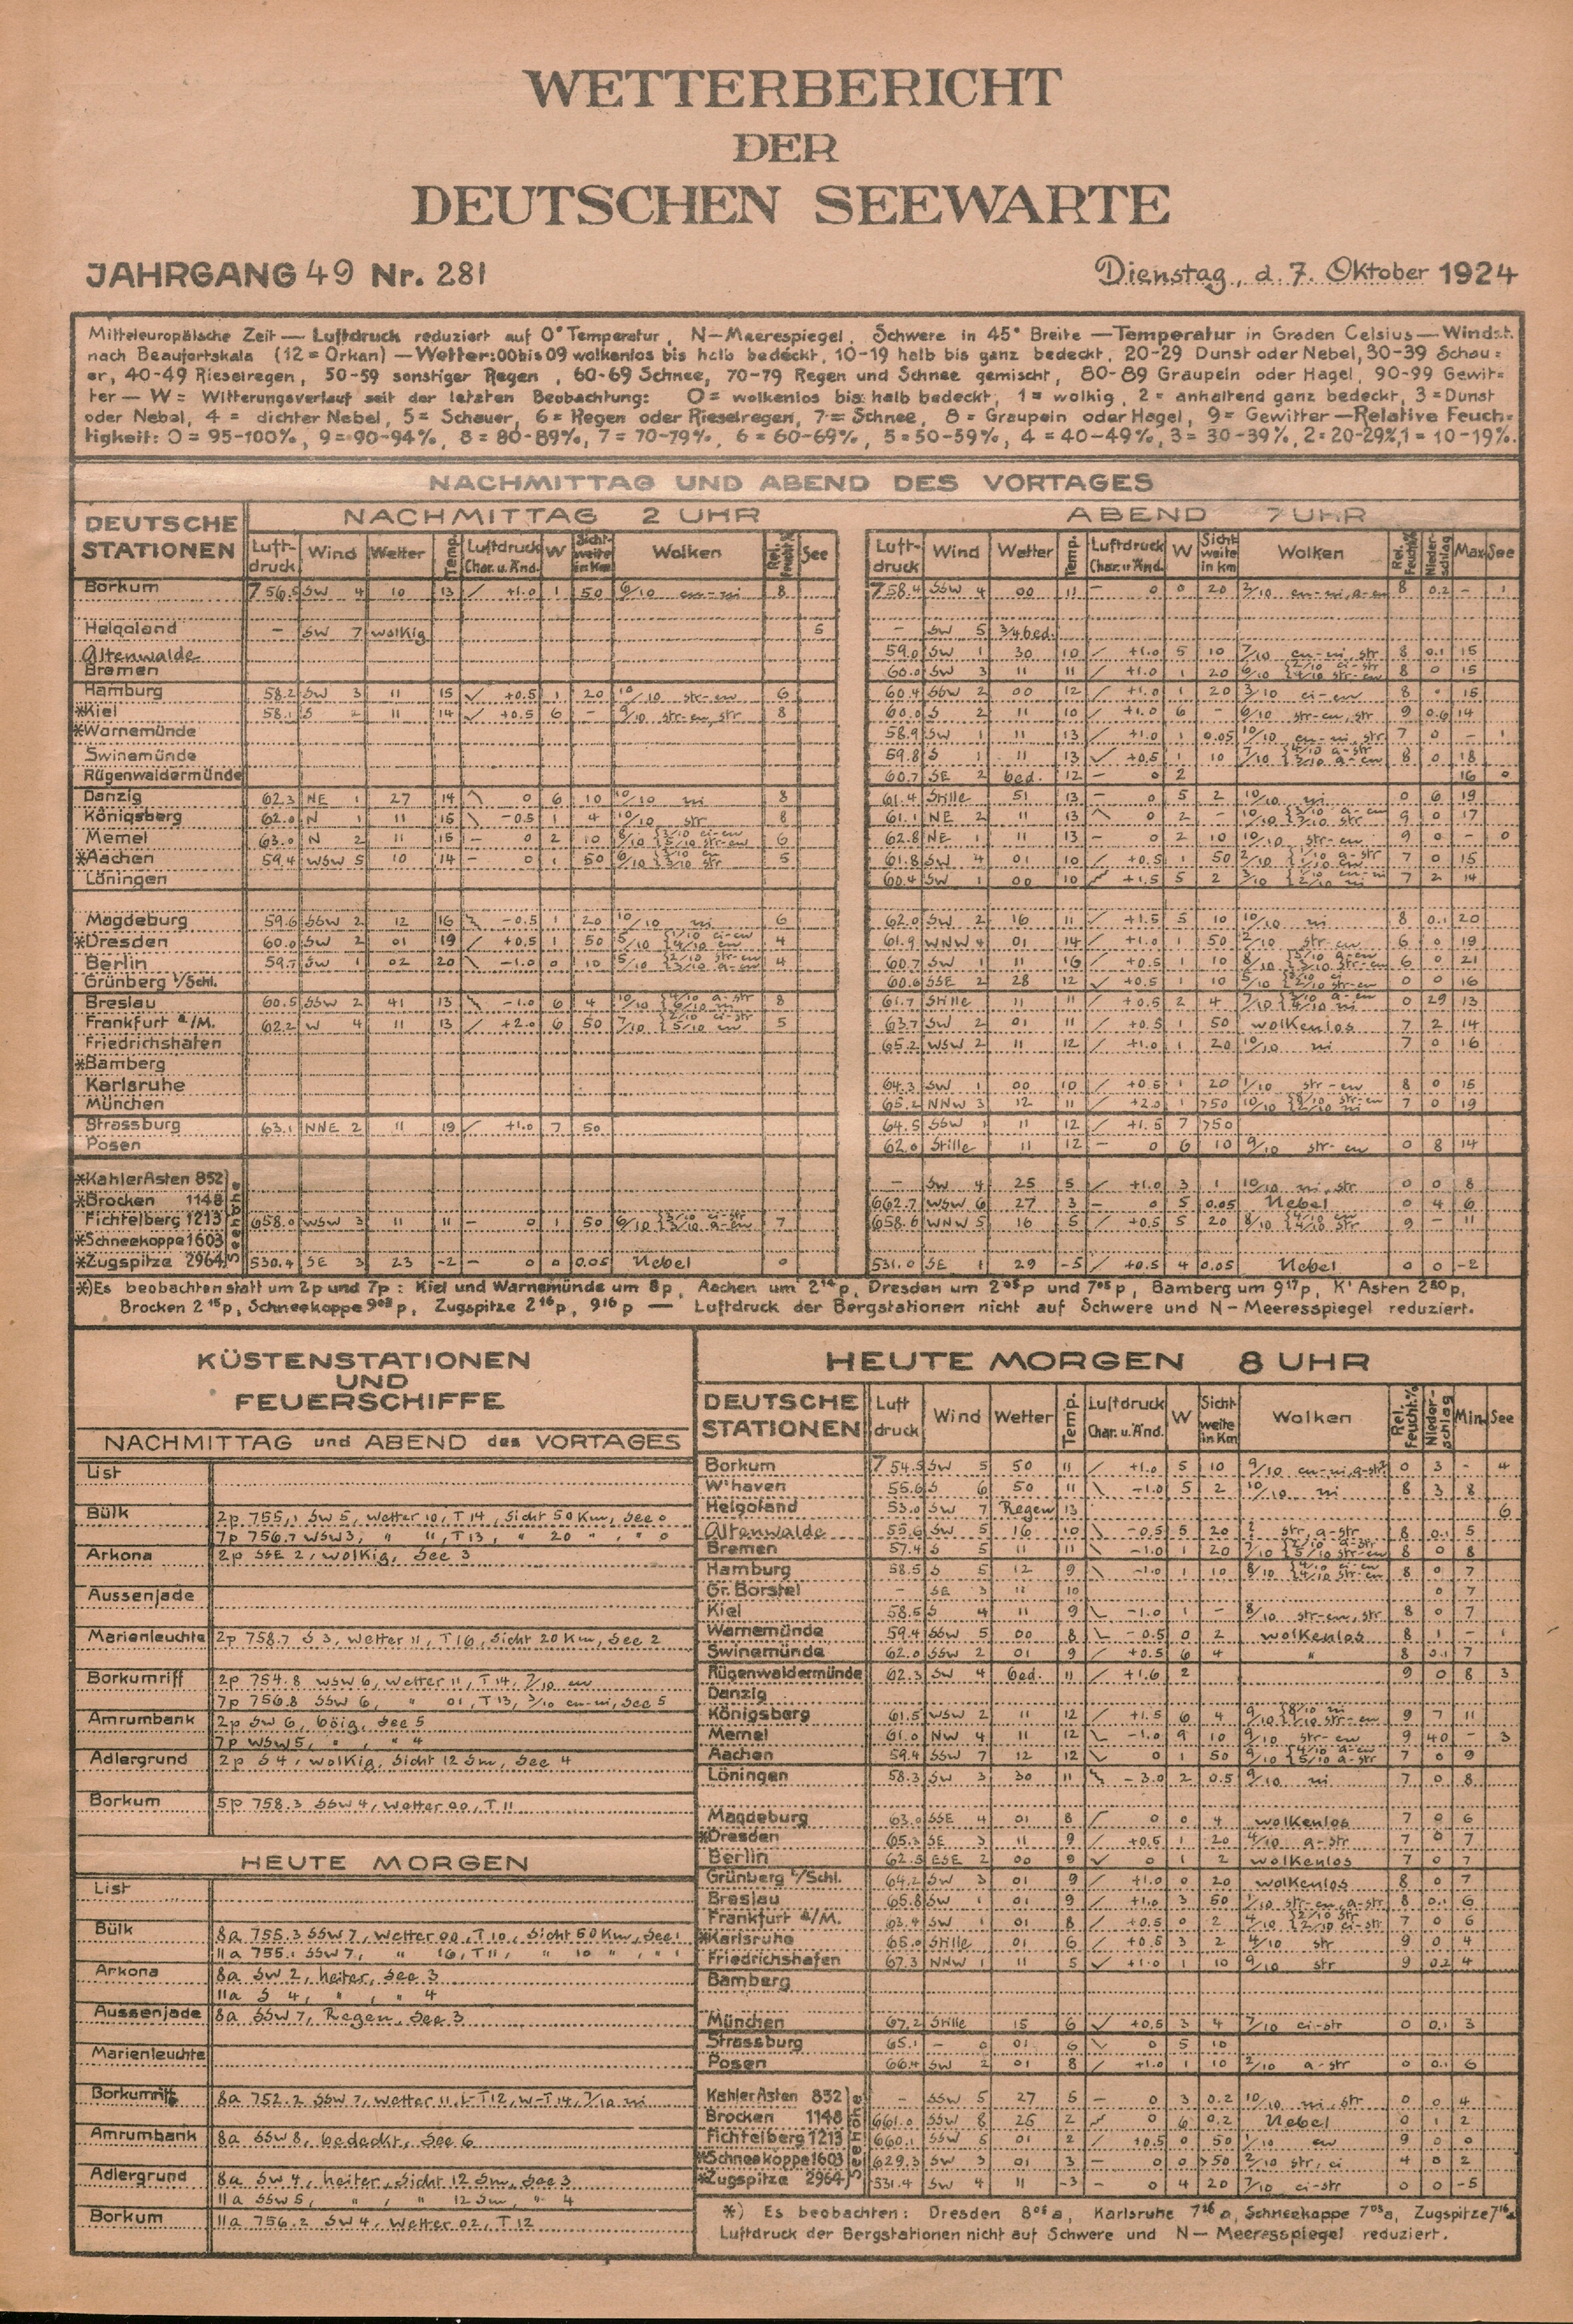 WETTERBERICHT
DER
DEUTSCHEN SEEWARTE
JAHRGANG 49 Nr. 281
Dienstag, d. 7. Oktober 1924
Mitteleuropäische Zeit — Luftdruck reduziert auf 0° Temperatur, N—Meerespiegel, Schwere in 45° Breite — Temperatur in Graden Celsius — Windst.
nach Beaufortskala (12 = Orkan) — Wetter: 00 bis 09 wolkenlos bis halb bedeckt, 10-19 halb bis ganz bedeckt, 20-29 Dunst oder Nebel, 30-39 Schau=
er, 40-49 Rieselregen, 50-59 sonstiger Regen, 60-69 Schnee, 70-79 Regen und Schnee gemischt, 80-89 Graupeln oder Hagel, 90-99 Gewit=
ter — W = Witterungsverlauf seit der letzten Beobachtung: 0 = wolkenlos bis halb bedeckt, 1 = wolkig, 2 = anhaltend ganz bedeckt, 3 = Dunst
oder Nebel, 4 = dichter Nebel, 5 = Schauer, 6 = Regen oder Rieselregen, 7 = Schnee, 8 = Graupeln oder Hagel, 9 = Gewitter — Relative Feuch=
tigkeit: 0 = 95-100%, 9 = 90-94%, 8 = 80-89%, 7 = 70-79%, 6 = 60-69%, 5 = 50-59%, 4 = 40-49%, 3 = 30-39%, 2 = 20-29%, 1 = 10-19%.
NACHMITTAG UND ABEND DES VORTAGES
DEUTSCHE STATIONEN
NACHMITTAG 2 UHR
ABEND 7 UHR
Luft-druck Wind Wetter Temp. Luftdruck Char. u. Änd. W Sicht-weite in Km Wolken Rel. Feucht.% See
Luft-druck Wind Wetter Temp. Luftdruck Char. u. Änd. W Sicht-weite in Km Wolken Rel. Feucht.% Nieder-schlag Max See
Borkum 756.5 SW 4 10 13 +1.0 1 50 6/10 cu-ni 8 758.4 SSW 4 00 11 — 0 0 20 2/10 8 0.2 - 1
Helgoland — SW 7 wolkig 5 — SW 5 3/4 bed.
Altenwalde 59.0 SW 1 30 10 +1.0 5 10 7/10 cu-ni, str 8 0.1 15
Bremen 60.0 SW 3 11 11 +1.0 1 20 6/10 {2/10 ci-str 4/10 str-cu 8 0 15
Hamburg 58.2 SW 3 11 15 +0.5 1 20 10/10 str-cu 6 60.4 SSW 2 00 12 +1.0 1 20 3/10 ci-cu 8 0 15
*Kiel 58.1 S 2 11 14 +0.5 6 - 9/10 str-cu, str 8 60.0 S 2 11 10 +1.0 6 - 6/10 str-cu, str 9 0.6 14
*Warnemünde 58.9 SW 1 11 13 +1.0 1 0.05 10/10 cu-ni, str 7 0 - 1
Swinemünde 59.8 S 1 11 13 +0.5 1 10 7/10 {4/10 a-str 3/10 a-cu 8 0 18
Rügenwaldermünde 60.7 SE 2 bed. 12 — 0 2 16 0
Danzig 62.3 NE 1 27 14 0 6 10 10/10 ni 8 61.4 Stille 51 13 — 0 5 2 10/10 ni 0 6 19
Königsberg 62.0 N 1 11 15 -0.5 1 4 10/10 str 8 61.1 NE 2 11 13 0 2 - 10/10 9 0 17
Memel 63.0 N 2 11 15 — 0 2 10 8/10 {3/10 ci-cu 5/10 str-cu 6 62.8 NE 1 11 13 — 0 2 10 10/10 str-cu 9 0 - 0
*Aachen 59.4 WSW 5 10 14 — 0 1 50 6/10 5 61.8 SW 4 01 10 +0.5 1 50 2/10 {1/10 a-str 1/10 cu 7 0 15
Löningen 60.4 SW 1 00 10 +1.5 5 2 3/10 7 2 14
Magdeburg 59.6 SSW 2 12 16 -0.5 1 20 10/10 ni 6 62.0 SW 2 16 11 +1.5 5 10 10/10 ni 8 0.1 20
*Dresden 60.0 SW 2 01 19 +0.5 1 50 5/10 {1/10 ci-cu 4/10 cu 4 61.9 WNW 4 01 14 +1.0 1 50 2/10 str-cu 6 0 19
Berlin 59.7 SW 1 02 20 -1.0 0 10 5/10 {2/10 str-cu 3/10 a-cu 4 60.7 SW 1 11 16 +0.5 1 10 8/10 6 0 21
Grünberg i/Schl. 60.6 SSE 2 28 12 +0.5 1 10 5/10 0 0 16
Breslau 60.5 SSW 2 41 13 -1.0 6 4 10/10 {4/10 a-str 6/10 ni 8 61.7 Stille 11 11 +0.5 2 4 7/10 0 29 13
Frankfurt a/M. 62.2 W 4 11 13 +2.0 6 50 7/10 {2/10 ci-str 5/10 cu 5 63.7 SW 2 01 11 +0.5 1 50 wolkenlos 7 2 14
Friedrichshafen 65.2 WSW 2 11 12 +1.0 1 20 10/10 ni 7 0 16
*Bamberg
Karlsruhe 64.3 SW 1 00 10 +0.5 1 20 1/10 str-cu 8 0 15
München 65.2 NNW 3 12 11 +2.0 1 >50 10/10 {8/10 str-cu 2/10 ni 7 0 19
Strassburg 63.1 NNE 2 11 19 +1.0 7 50 64.5 SSW 1 11 12 +1.5 7 >50
Posen 62.0 Stille 11 12 — 0 6 10 9/10 str-cu 0 8 14
*Kahler Asten 852 — SW 4 25 5 +1.0 3 1 10/10 ni, str 0 0 8
*Brocken 1148 662.7 WSW 6 27 3 — 0 5 0.05 Nebel 0 4 6
Fichtelberg 1213 658.0 WSW 3 11 11 — 0 1 50 6/10 {3/10 ci-str 3/10 a-cu 7 658.6 WNW 5 16 5 +0.5 5 20 8/10 {4/10 cu 4/10 str 9 — 11
*Schneekoppe 1603
*Zugspitze 2964 530.4 SE 3 23 -2 — 0 0 0.05 Nebel 0 531.0 SE 1 29 -5 +0.5 4 0.05 Nebel 0 0 -2
Seehöhe
*) Es beobachten statt um 2p und 7p: Kiel und Warnemünde um 8p, Aachen um 2 14 p, Dresden um 2 05 p und 7 05 p, Bamberg um 9 17 p, K' Asten 2 20 p,
Brocken 2 15 p, Schneekoppe 9 03 p, Zugspitze 2 16 p, 9 16 p — Luftdruck der Bergstationen nicht auf Schwere und N—Meeresspiegel reduziert.
KÜSTENSTATIONEN
UND
FEUERSCHIFFE
NACHMITTAG und ABEND des VORTAGES
List
Bülk 2p 755.1 SW 5, Wetter 10, T 14, Sicht 50 Km, See 0
7p 756.7 WSW 3, " 11, T 13, " 20 ", " 0
Arkona 2p SSE 2, wolkig, See 3
Aussenjade
Marienleuchte 2p 758.7 S 3, Wetter 11, T 16, Sicht 20 Km, See 2
Borkumriff 2p 754.8 WSW 6, Wetter 11, T 14, 7/10 cu
7p 756.8 SSW 6, " 01, T 13, 3/10 cu-ni, See 5
Amrumbank 2p SW 6, böig, See 5
7p WSW 5, " , " 4
Adlergrund 2p S 4, wolkig, Sicht 12 Sm, See 4
Borkum 5p 758.3 SSW 4, Wetter 00, T 11
HEUTE MORGEN
List
Bülk 8a 755.3 SSW 7, Wetter 00, T 10, Sicht 50 Km, See 1
11a 755.1 SSW 7, " 16, T 11, " 10 ", " 1
Arkona 8a SW 2, heiter, See 3
11a S 4, " , " 4
Aussenjade 8a SSW 7, Regen, See 3
Marienleuchte
Borkumriff 8a 752.2 SSW 7, Wetter 11, L-T 12, W-T 14, 7/10 ni
Amrumbank 8a SSW 8, bedeckt, See 6
Adlergrund 8a SW 4, heiter, Sicht 12 Sm, See 3
11a SSW 5, " , " 12 Sm, " 4
Borkum 11a 756.2 SW 4, Wetter 02, T 12
HEUTE MORGEN 8 UHR
DEUTSCHE STATIONEN Luft druck Wind Wetter Temp. Luftdruck Char. u. Änd. W Sicht-weite in Km Wolken Rel. Feucht.% Nieder-schlag Min. See
Borkum 754.5 SW 5 50 11 +1.0 5 10 9/10 0 3 - 4
W'haven 55.6 S 6 50 11 -1.0 5 2 10/10 ni 8 3 8
Helgoland 53.0 SW 7 Regen 13 6
Altenwalde 55.6 SW 5 16 10 -0.5 5 20 str, a-str 8 0.1 5
Bremen 57.4 S 5 11 11 -1.0 1 20 7/10 {2/10 a-str 5/10 str-cu 8 0 8
Hamburg 58.5 S 5 12 9 -1.0 1 10 8/10 {4/10 ci-cu 4/10 str-cu 8 0 7
Gr. Borstel — SE 3 11 10 0 7
Kiel 58.5 S 4 11 9 -1.0 1 - 8/10 str-cu, str 8 0 7
Warnemünde 59.4 SSW 5 00 8 -0.5 0 2 wolkenlos 8 1 - 1
Swinemünde 62.0 SSW 2 01 9 +0.5 6 4 " 8 0.1 7
Rügenwaldermünde 62.3 SW 4 bed. 11 +1.6 2 9 0 8 3
Danzig
Königsberg 61.5 WSW 2 11 12 +1.5 6 4 9/10 {8/10 ni 1/10 str-cu 9 7 11
Memel 61.0 NW 4 11 12 -1.0 9 10 9/10 str-cu 9 40 - 3
Aachen 59.4 SSW 7 12 12 0 1 50 9/10 {4/10 a-cu 5/10 a-str 7 0 9
Löningen 58.3 SW 3 30 11 -3.0 2 0.5 9/10 ni 7 0 8
Magdeburg 63.0 SSE 4 01 8 0 0 4 wolkenlos 7 0 6
*Dresden 65.3 SE 3 11 9 +0.5 1 20 4/10 a-str 7 0 7
Berlin 62.5 ESE 2 00 9 0 1 2 wolkenlos 7 0 7
Grünberg i/Schl. 64.2 SW 3 01 9 +1.0 0 20 wolkenlos 8 0 7
Breslau 65.8 SW 1 01 9 +1.0 3 50 1/10 str-cu, a-str 8 0.1 6
Frankfurt a/M. 63.4 SW 1 01 8 +0.5 0 2 4/10 {2/10 str 2/10 ci-str 7 0 6
*Karlsruhe 65.0 Stille 01 6 +0.5 3 2 4/10 str 9 0 4
Friedrichshafen 67.3 NNW 1 11 5 +1.0 1 10 9/10 str 9 0.2 4
Bamberg
München 67.2 Stille 15 6 +0.5 3 4 7/10 ci-str 0 0.1 3
Strassburg 65.1 — 0 01 6 0 5 10
Posen 66.4 SW 2 01 8 +1.0 1 10 2/10 a-str 0 0.1 6
Kahler Asten 852 — SSW 5 27 5 — 0 3 0.2 10/10 ni, str 0 0 4
Brocken 1148 661.0 SSW 8 25 2 0 6 0.2 Nebel 0 1 2
Fichtelberg 1213 660.1 SSW 5 01 2 +0.5 0 50 1/10 cu 9 0 0
*Schneekoppe 1603 629.3 SW 3 01 3 — 0 0 >50 2/10 str, ci 4 0 2
*Zugspitze 2964 531.4 SW 4 11 -3 — 0 4 20 7/10 ci-str 0 0 -5
Seehöhe
*) Es beobachten: Dresden 8 05 a, Karlsruhe 7 26 a, Schneekoppe 7 03 a, Zugspitze 7 16 a
Luftdruck der Bergstationen nicht auf Schwere und N—Meeresspiegel reduziert.